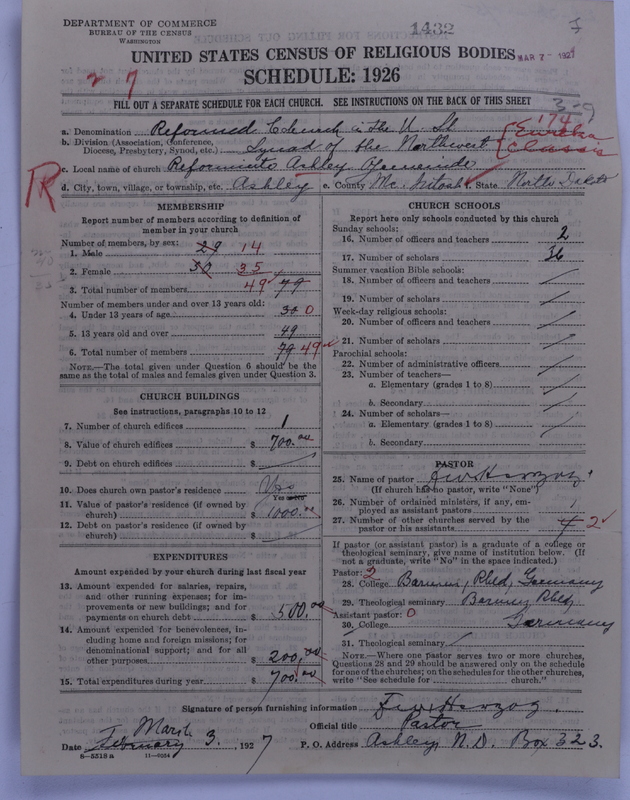 DEPARTMENT OF COMMERCE
BUREAU OF THE CENSUS
WASHINGTON
1432
UNITED STATES CENSUS OF RELIGIOUS BODIES
MAR 7 - 1927
SCHEDULE: 1926
FILL OUT A SEPARATE SCHEDULE FOR EACH CHURCH. SEE INSTRUCTIONS ON THE BACK OF THIS SHEET
3-9
174
a. Denomination Reformed Church in the U. St
b. Division (Association, Conference, Diocese, Presbytery, Synod, etc.) Synod of the Northwest
Eureka Classis
c. Local name of church Ashley
R
d. City, town, village, or township, etc. Ashley e. County Mc. Intosh State North Dakota
MEMBERSHIP
Report number of members according to definition of
member in your church
Number of members, by sex:
1. Male 29 14
2. Female 50 35
3. Total number of members 49 79
Number of members under and over 13 years old:
4. Under 13 years of age 30 0
5. 13 years old and over 49
6. Total number of members 79 49
NOTE.—The total given under Question 6 should be the
same as the total of males and females given under Question 3.
CHURCH BUILDINGS
See instructions, paragraphs 10 to 12
7. Number of church edifices 1
8. Value of church edifices $ 700.00
9. Debt on church edifices $
10. Does church own pastor's residence Yes
Yes or no
11. Value of pastor's residence (if owned by
church) $ 1000.00
12. Debt on pastor's residence (if owned by
church) $
EXPENDITURES
Amount expended by your church during last fiscal year
13. Amount expended for salaries, repairs,
and other running expenses; for im-
provements or new buildings; and for
payments on church debt $ 500.00
14. Amount expended for benevolences, in-
cluding home and foreign missions; for
denominational support; and for all
other purposes $ 200.00
15. Total expenditures during year $ 700.00
CHURCH SCHOOLS
Report here only schools conducted by this church
Sunday schools:
16. Number of officers and teachers 2
17. Number of scholars 36
Summer vacation Bible schools:
18. Number of officers and teachers
19. Number of scholars
Week-day religious schools:
20. Number of officers and teachers
21. Number of scholars
Parochial schools:
22. Number of administrative officers
23. Number of teachers—
a. Elementary (grades 1 to 8)
b. Secondary
24. Number of scholars—
a. Elementary (grades 1 to 8)
b. Secondary
PASTOR
25. Name of pastor Herzog
(If church has no pastor, write "None")
26. Number of ordained ministers, if any, em-
ployed as assistant pastors
27. Number of other churches served by the
pastor or his assistants 4 2
If pastor (or assistant pastor) is a graduate of a college or
theological seminary, give name of institution below. (If
not a graduate, write "No" in the space indicated.)
Pastor: 2
28. College Barmen, Rhld, Germany
29. Theological seminary Barmen Rhld,
Germany
Assistant pastor: 0
30. College
31. Theological seminary
NOTE.—Where one pastor serves two or more churches,
Questions 28 and 29 should be answered only on the schedule
for one of the churches; on the schedules for the other churches,
write "See schedule for church."
Signature of person furnishing information Herzog.
Official title Pastor
Date February March 3., 1927 P. O. Address Ashley, N. D. Box 323.
8—5518 a 11—9054